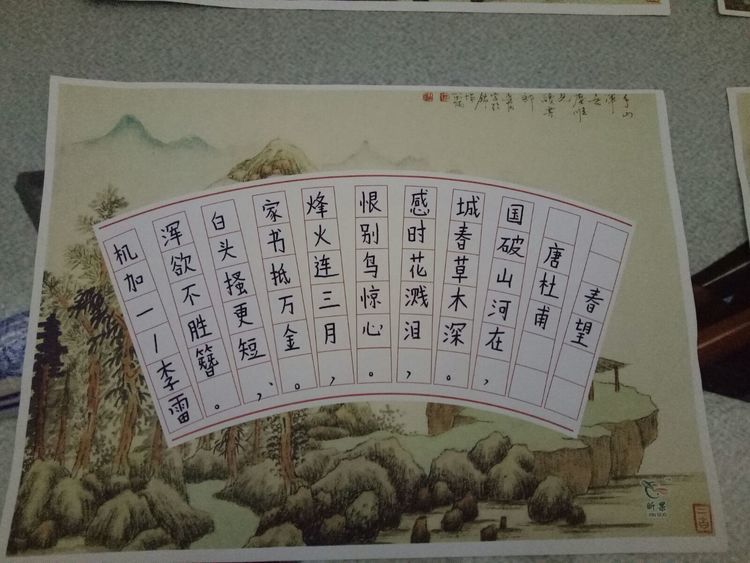 春望
唐杜甫
国破山河在，
城春草木深。
感时花溅泪，
恨别鸟惊心。
烽火连三月，
家书抵万金。
白头搔更短，
浑欲不胜簪。
机加一一李雷
昕景